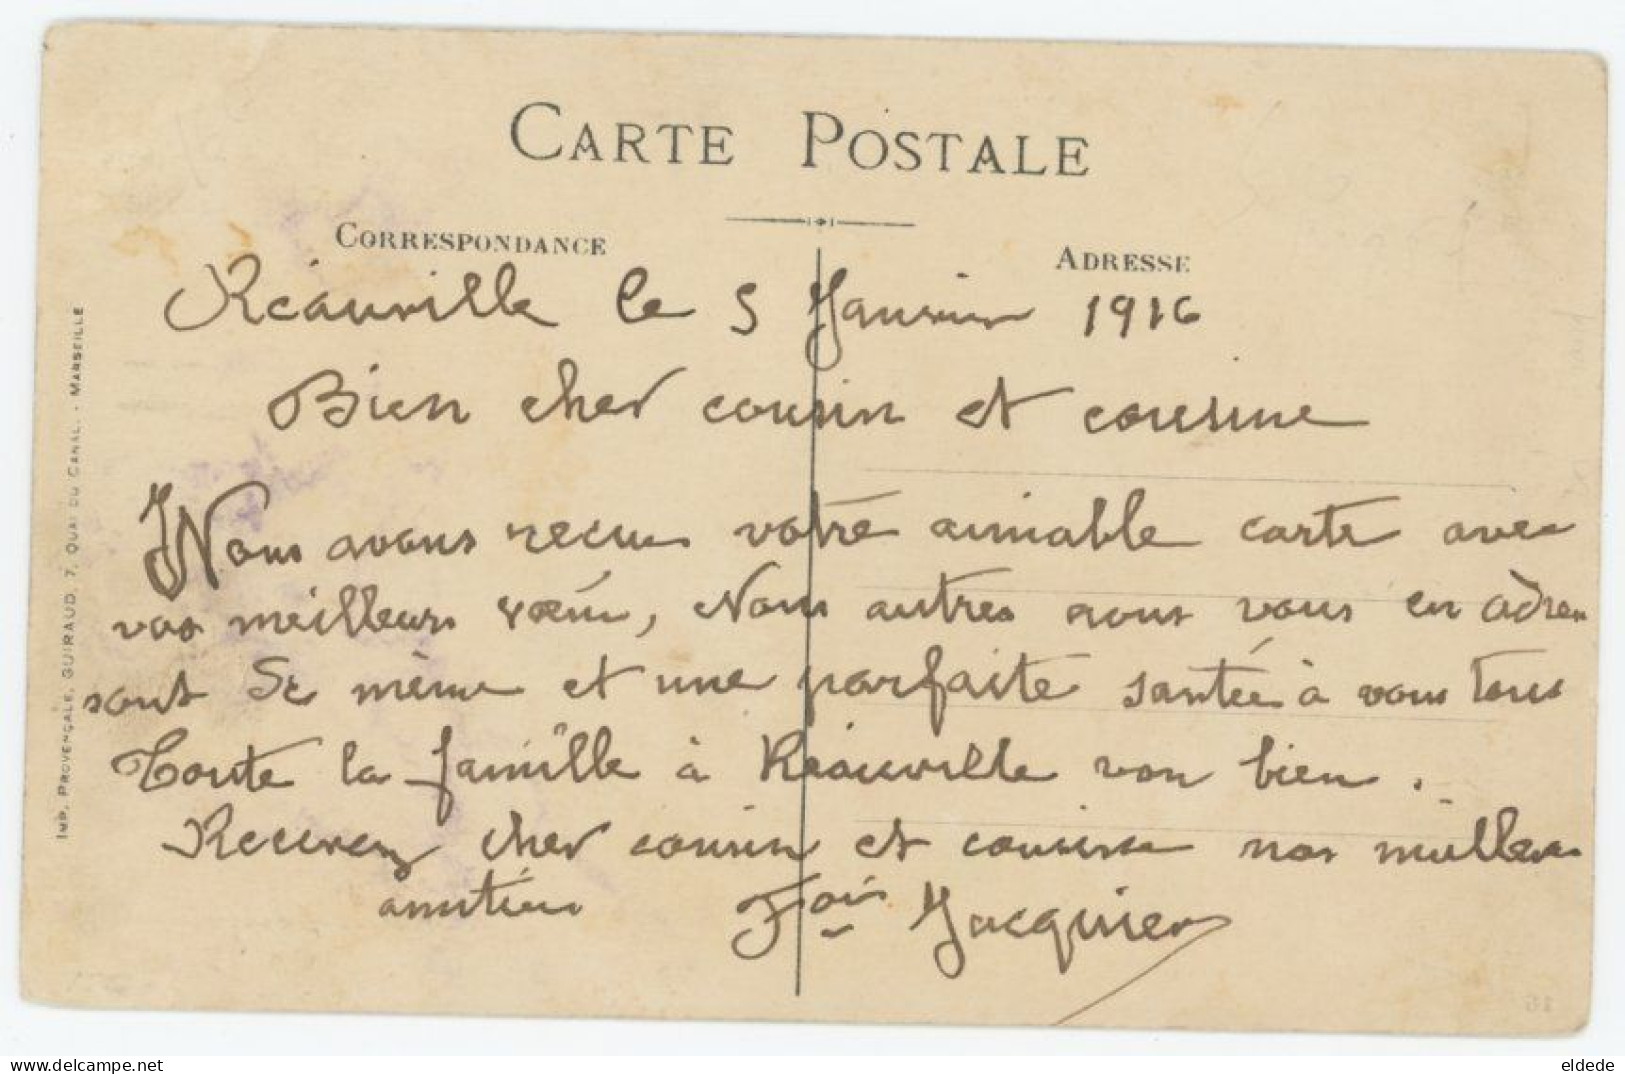 CARTE POSTALE
CORRESPONDANCE
ADRESSE
Réauville le 5 Janvier 1916
Bien cher cousin et cousine
Nous avons recus votre aimable carte avec
vos meilleurs vœux, Nous autres nous vous en adres
sont de même et une parfaite santée à vous tous
Toute la famille à Réauville von bien.
Recevez cher cousin et cousine nos meilleurs
amitiées
Fois Jacquier
IMP. PROVENÇALE, GUIRAUD, 7, QUAI DU CANAL. - MARSEILLE
16
eldede